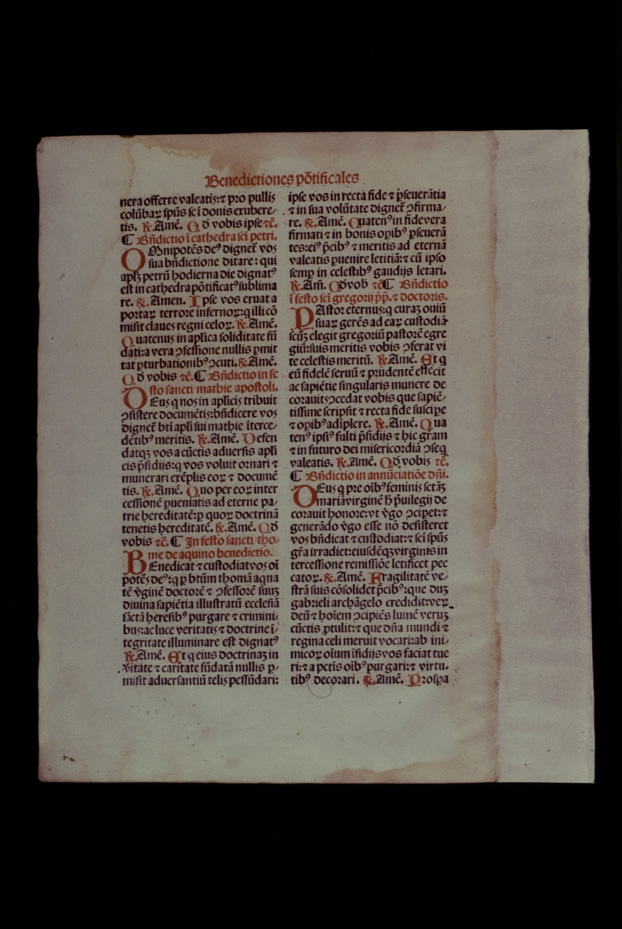 Benedictiones põtificales
nera offerre valeatis: ⁊ pro pullis
colũbaꝝ spũs sci donis exubere⸗
tis. ℟. Amẽ. Qđ vobis ipse ⁊c̃.
¶ Bñdictio ĩ cathedra sci petri.
OMnipotẽs de⁹ dignet᷑ vos
sua bñdictione ditare: qui
aplꝫ petrũ hodierna die dignat⁹
est in cathedra põtificat⁹ sublima
re. ℟. Amen. Ipse vos eruat a
portaꝝ terrore infernoꝝ: q̇ illi cõ
misit claues regni celoꝝ. ℟. Amẽ.
Quatenus in aplica soliditate fũ
dati: a vera ꝯfessione nullis ꝑmit
tat ꝑturbationib⁹ ꝯcuti. ℟. Amẽ.
Qđ vobis ⁊c̃. ¶ Bñdictio in fe
sto sancti mathie apostoli.
DEus q̇ nos in aplicis tribuit
ꝯsistere documẽtis: bñdicere vos
dignet᷑ bti apli sui mathie ĩterce⸗
dẽtib⁹ meritis. ℟. Amẽ. Defen
datqꝫ vos a cũctis aduersis apli
cis p̃sidijs: q̇ vos voluit ornari ⁊
munerari exẽplis eoꝝ ⁊ documẽ
tis. ℟. Amẽ. Quo per eoꝝ inter
cessionẽ ꝑueniatis ad eterne pa⸗
trie hereditatẽ: ꝑ quoꝝ doctrinã
tenetis hereditatẽ. ℟. Amẽ. Qđ
vobis ⁊c̃. ¶ In festo sancti tho⸗
me de aquino benedictio.
BEnedicat ⁊ custodiat vos oĩ
potẽs de⁹: q̇ ꝑ btũm thomã aqna
tẽ v̇ginẽ doctorẽ ⁊ ꝯfessorẽ suuꝫ
diuina sapiẽtia illustratũ ecclesiã
sãctã heresib⁹ purgare ⁊ crimini
bus: ac luce veritatis ⁊ doctrine ĩ⸗
tegritate illuminare est dignat⁹
℟. Amẽ. Et q̇ eius doctrinaꝫ in
v̇itate ⁊ caritate fũdatã nullis ꝑ⸗
misit aduersantiũ telis pessũdari:
ipse vos in recta fide ⁊ ꝑseuerãtia
⁊ in sua volũtate dignet᷑ ꝯfirma⸗
re. ℟. Amẽ. Quaten⁹ in fide vera
firmati ⁊ in bonis oꝑib⁹ ꝑseuerã
tes: ei⁹ p̃cib⁹ ⁊ meritis ad eternã
valeatis ꝑuenire letitiã: ⁊ cũ ipso
semꝑ in celestib⁹ gaudijs letari.
℟. Am̃. Qđ vob ⁊c̃ ¶ Bñdictio
ĩ festo sci gregorij pp̃. ⁊ doctoris.
PAstor eternus: q̇ curaꝫ ouiũ
suaꝝ gerẽs ad eaꝝ custodiã
scũꝫ elegit gregoriũ pastorẽ egre
giũ: suis meritis vobis ꝯferat vi
te celestis meritũ. ℟. Amẽ. Et q̇
eũ fidelẽ seruũ ⁊ prudentẽ effecit
ac sapiẽtie singularis munere de
corauit: ꝯcedat vobis que sapiẽ⸗
tissime scripsit ⁊ recta fide suscipe
⁊ oꝑib⁹ adĩplere. ℟. Amẽ. Qua
ten⁹ ipsi⁹ fulti p̃sidijs ⁊ hic gr̃am
⁊ in futuro dei misericordiã ꝯseq̇
valeatis. ℟. Amẽ. Qđ vobis ⁊c̃.
¶ Bñdictio in annũciatiõe dñi.
DEus q̇ pre oĩb⁹ feminis sct̃aꝫ
mariã virginẽ h̃ p̃uilegij de
corauit honore: vt v̇go ꝯcipet: ⁊
generãdo v̇go esse nõ desisteret
vos bñdicat ⁊ custodiat: ⁊ sci spũs
gr̃a irradiet: eiusdẽqꝫ virginis in
tercessione remissiõe letificet pec
catoꝝ. ℟. Amẽ. Fragilitatẽ ve⸗
strã suis cõsolidet p̃cib⁹: que duꝫ
gabrieli archãgelo credidit: verꝫ
deũ ⁊ hoĩem ꝯcipiẽs lumẽ veruꝫ
cũctis ꝓtulit: ⁊ que dña mundi ⁊
regina celi meruit vocari: ab ini⸗
micoꝝ oĩum ĩsidijs vos faciat tue
ri: ⁊ a petis oĩb⁹ purgari: ⁊ virtu⸗
tib⁹ decorari. ℟. Amẽ. Prospa